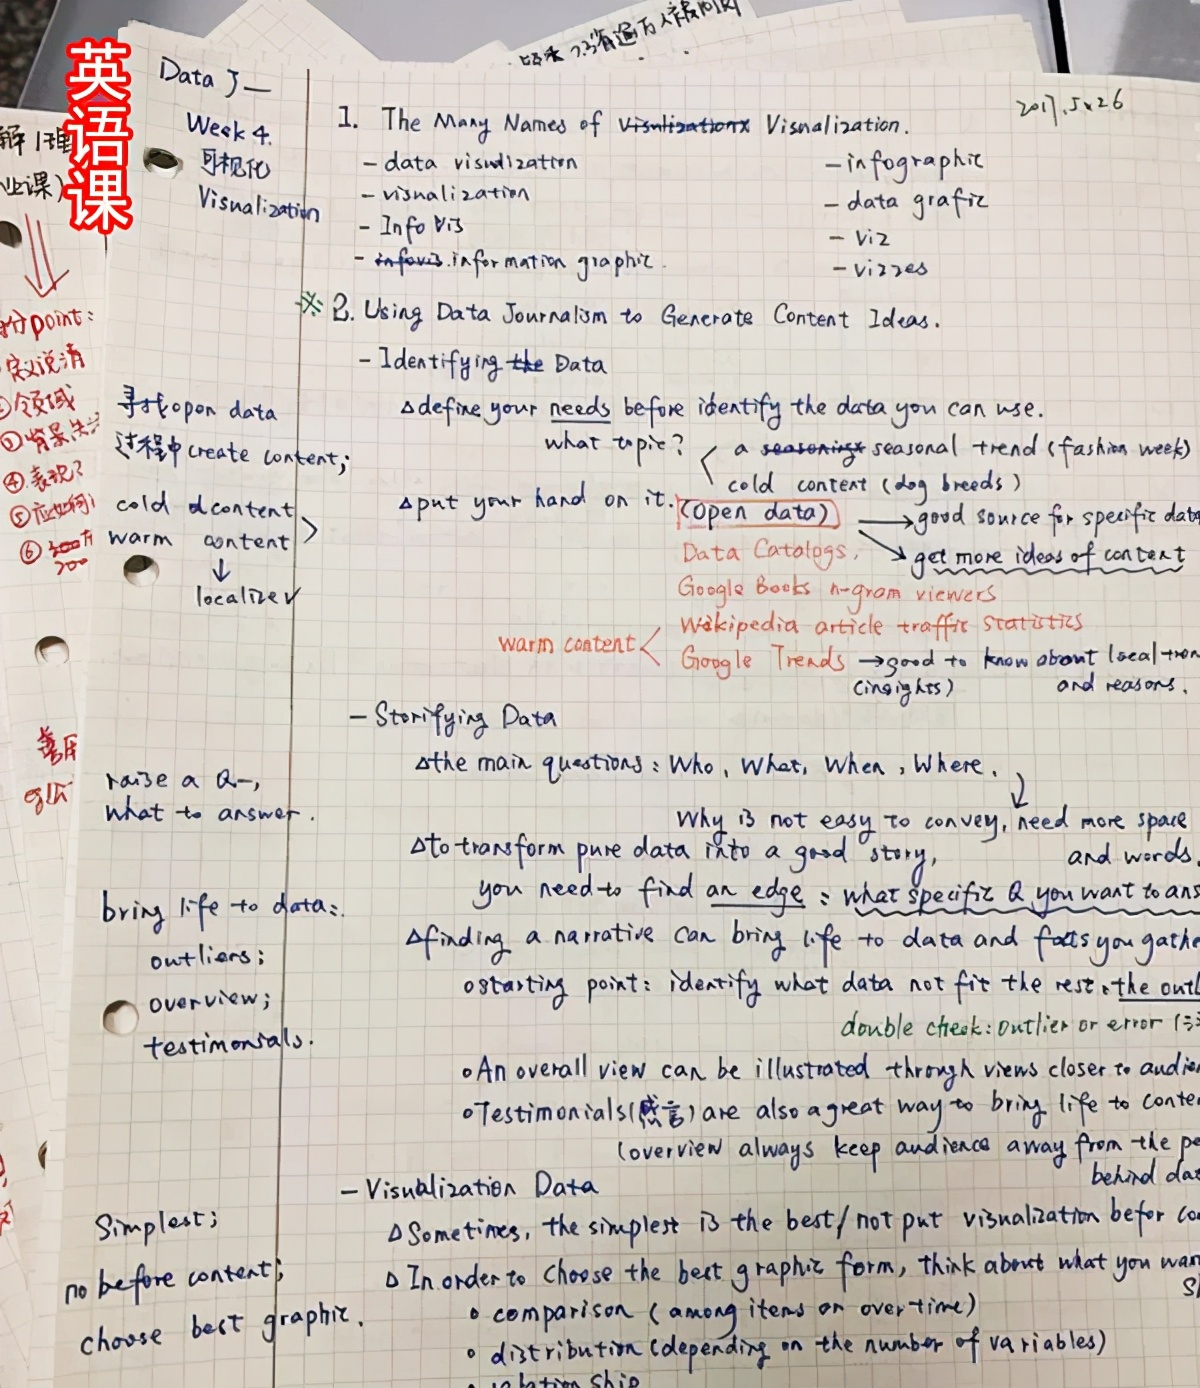 英语课
Data J—
Week 4.
可视化
Visualization
2017.5.26
1. The Many Names of Visualization.
- data visualization
- visualization
- Info Vis
- information graphic.
- infographic
- data grafic
- viz
- vizzes
※ 2. Using Data Journalism to Generate Content Ideas.
- Identifying the Data
△define your needs before identify the data you can use.
what topic?
a seasonal trend (fashion week)
cold content (dog breeds)
△put your hand on it. (Open data)
→good source for specific data
→get more ideas of content
Data Catalogs.
Google Books n-gram viewers
Wikipedia article traffic statistics
warm content <
Google Trends →good to know about local
(insights) and reasons.
寻找open data
过程中create content;
cold content
warm content
↓
localize
- Storifying Data
△the main questions: Who, What, When, Where.
Why is not easy to convey, need more space
and words.
△to transform pure data into a good story,
you need to find an edge: what specific Q you want to
△finding a narrative can bring life to data and facts you
○starting point: identify what data not fit the rest, the
double check: outlier or error
○An overall view can be illustrated through views closer to
○Testimonials(感言) are also a great way to bring life to
(overview always keep audience away from the
behind
raise a Q—,
what to answer.
bring life to data:
outliers;
overview;
testimonials.
- Visualization Data
△Sometimes, the simplest is the best/not put visualization befor
△In order to choose the best graphic form, think about what you
○comparison (among items or over time)
○distribution (depending on the number of variables)
Simplest;
no before content;
choose best graphic.
point:
定义说清
领域
③背景
④表现?
⑤应如何
⑥
200